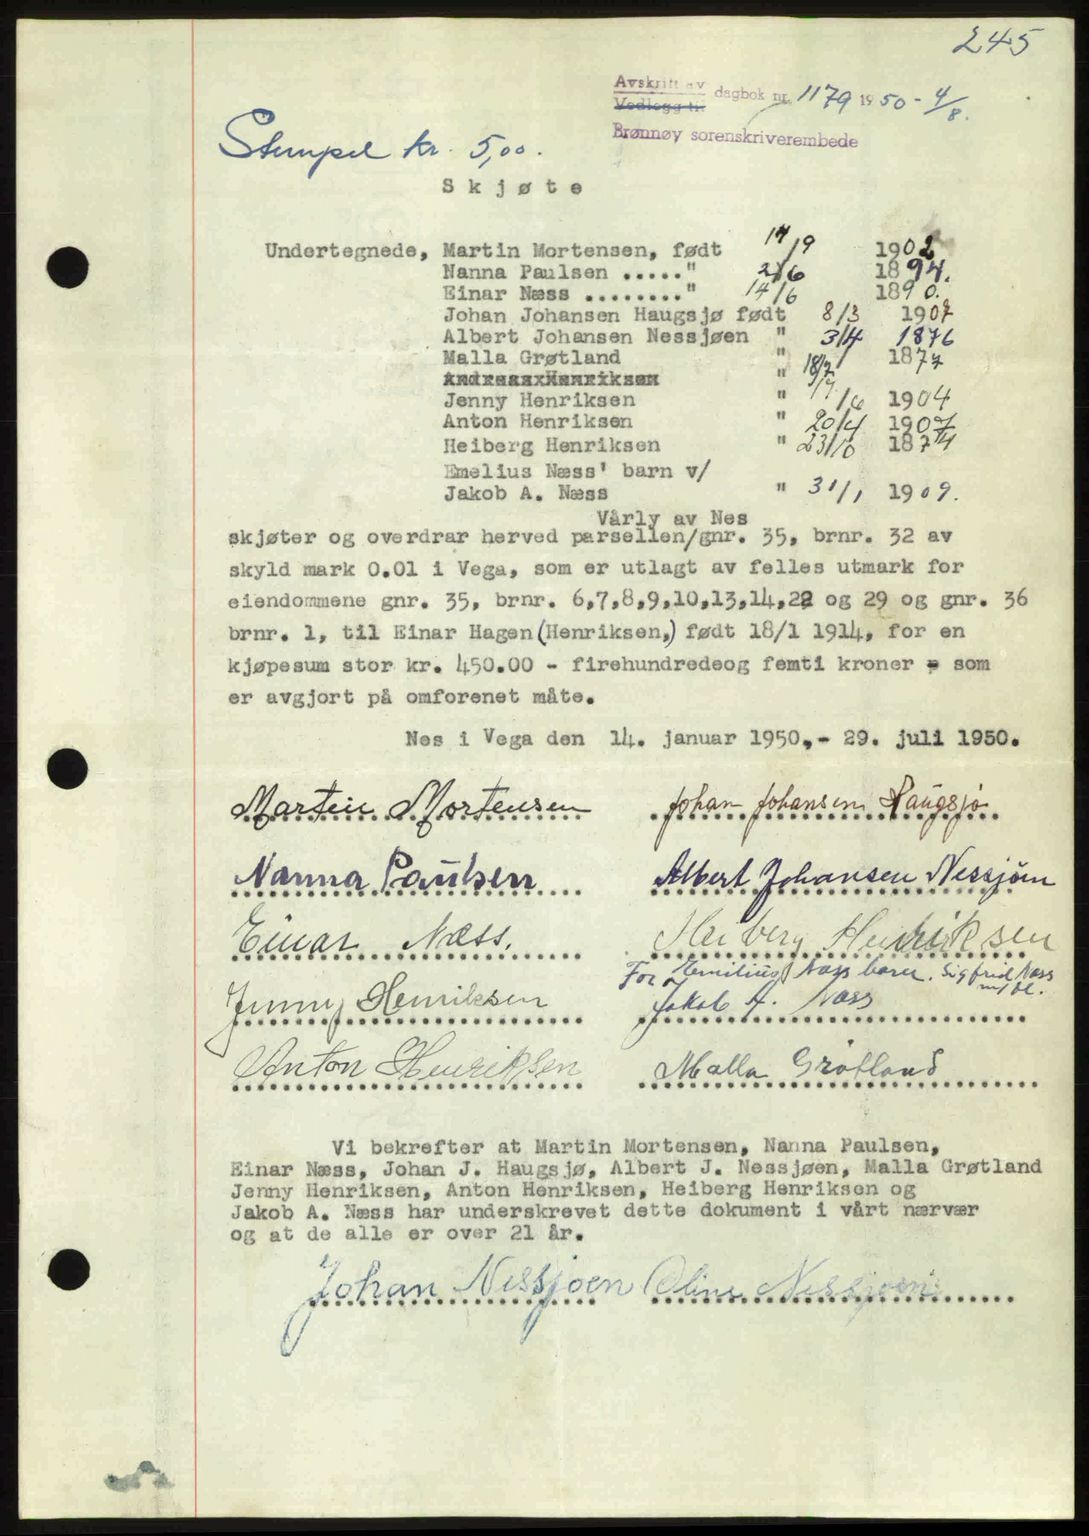 245
Avskrift av
Vedlegg til dagbok nr. 1179 1950 - 4/8.
Brønnøy sorenskriverembede
Stempel kr. 5,00.
Skjøte
Undertegnede, Martin Mortensen, født 17/9 1902
Nanna Paulsen ....." 2/6 1894.
Einar Næss ........" 14/6 1890.
Johan Johansen Haugsjø født 8/3 1907
Albert Johansen Nessjøen " 3/4 1876
Malla Grøtland " 18/7 1877
Andreas Henriksen "
Jenny Henriksen " 17/6 1904
Anton Henriksen " 20/4 1907
Heiberg Henriksen " 23/10 1874
Emelius Næss' barn v/
Jakob A. Næss " 31/1 1909.
Vårly av Nes
skjøter og overdrar herved parsellen/gnr. 35, brnr. 32 av
skyld mark 0.01 i Vega, som er utlagt av felles utmark for
eiendommene gnr. 35, brnr. 6,7,8,9,10,13,14,22 og 29 og gnr. 36
brnr. 1, til Einar Hagen (Henriksen,) født 18/1 1914, for en
kjøpesum stor kr. 450.00 - firehundredeog femti kroner - som
er avgjort på omforenet måte.
Nes i Vega den 14. januar 1950,- 29. juli 1950.
Martin Mortensen Johan Johansen Haugsjø
Nanna Paulsen Albert Johansen Nessjöen
Einar Næss. Heiberg Henriksen
For Emilius Næss barn. Sigfrid Næss
Jenny Henriksen Jakob A. Næss
Anton Henriksen Malla Grøtland
Vi bekrefter at Martin Mortensen, Nanna Paulsen,
Einar Næss, Johan J. Haugsjø, Albert J. Nessjøen, Malla Grøtland
Jenny Henriksen, Anton Henriksen, Heiberg Henriksen og
Jakob A. Næss har underskrevet dette dokument i vårt nærvær
og at de alle er over 21 år.
Johan Nessjøen Oline Nessjøen